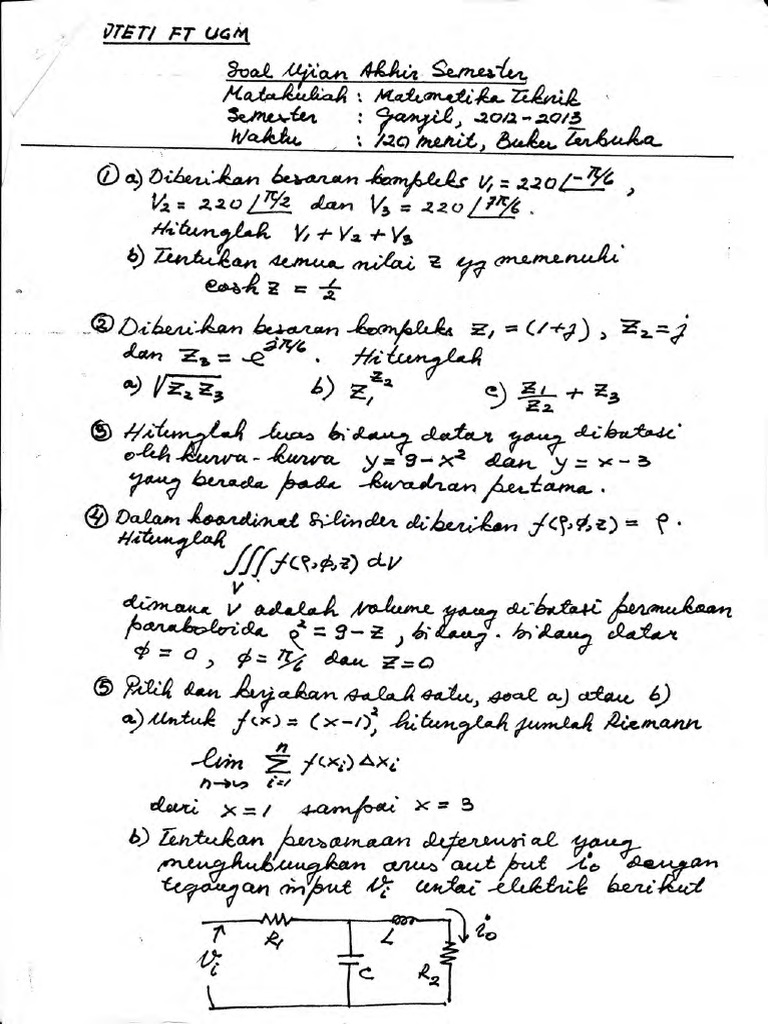 JTETI FT UGM
Soal Ujian Akhir Semester
Matakuliah : Matematika Teknik
Semester : Ganjil, 2012-2013
Waktu : 120 menit, Buku Terbuka
① a) Diberikan besaran kompleks V₁ = 220∠-π/6 ,
V₂ = 220∠π/2 dan V₃ = 220∠7π/6 .
Hitunglah V₁ + V₂ + V₃
b) Tentukan semua nilai z yg memenuhi
cosh z = 1/2
② Diberikan besaran kompleks z₁ = (1+j), z₂ = j
dan z₃ = e^{jπ/6} . Hitunglah
a) √(z₂ z₃) b) z₁^{z₂} c) z₁/z₂ + z₃
③ Hitunglah luas bidang datar yang dibatasi
oleh kurva-kurva y = 9 - x² dan y = x - 3
yang berada pada kwadran pertama.
④ Dalam koordinat Silinder diberikan f(ρ,φ,z) = ρ.
Hitunglah
∭ f(ρ,φ,z) dV
V
dimana V adalah Volume yang dibatasi permukaan
paraboloida ρ² = 9 - z , bidang-bidang datar
φ = 0 , φ = π/6 dan z = 0
⑤ Pilih dan kerjakan salah satu, soal a) atau b)
a) Untuk f(x) = (x-1)², hitunglah jumlah Riemann
lim n→∞ Σ_{i=1}^{n} f(xᵢ) Δxᵢ
dari x = 1 sampai x = 3
b) Tentukan persamaan deferensial yang
menghubungkan arus out put i₀ dengan
tegangan input Vᵢ untai elektrik berikut
Vᵢ R₁ C L R₂ i₀